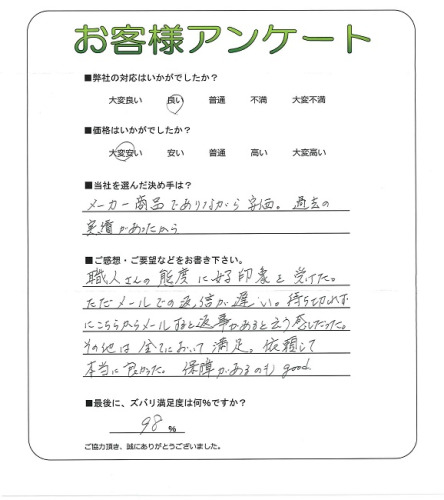 お客様アンケート
■弊社の対応はいかがでしたか?
大変良い 良い 普通 不満 大変不満
■価格はいかがでしたか?
大変安い 安い 普通 高い 大変高い
■当社を選んだ決め手は?
メーカー商品でありながら安価。過去の
実績があったから
■ご感想・ご要望などをお書き下さい。
職人さんの態度に好印象を受けた。
ただメールでの返信が遅い。待ち切れずに
こちらからメールすると返事があると云う感じだった。
その他は全てにおいて満足。依頼して
本当に良かった。保障があるのもgood
■最後に、ズバリ満足度は何%ですか?
98 %
ご協力頂き、誠にありがとうございました。